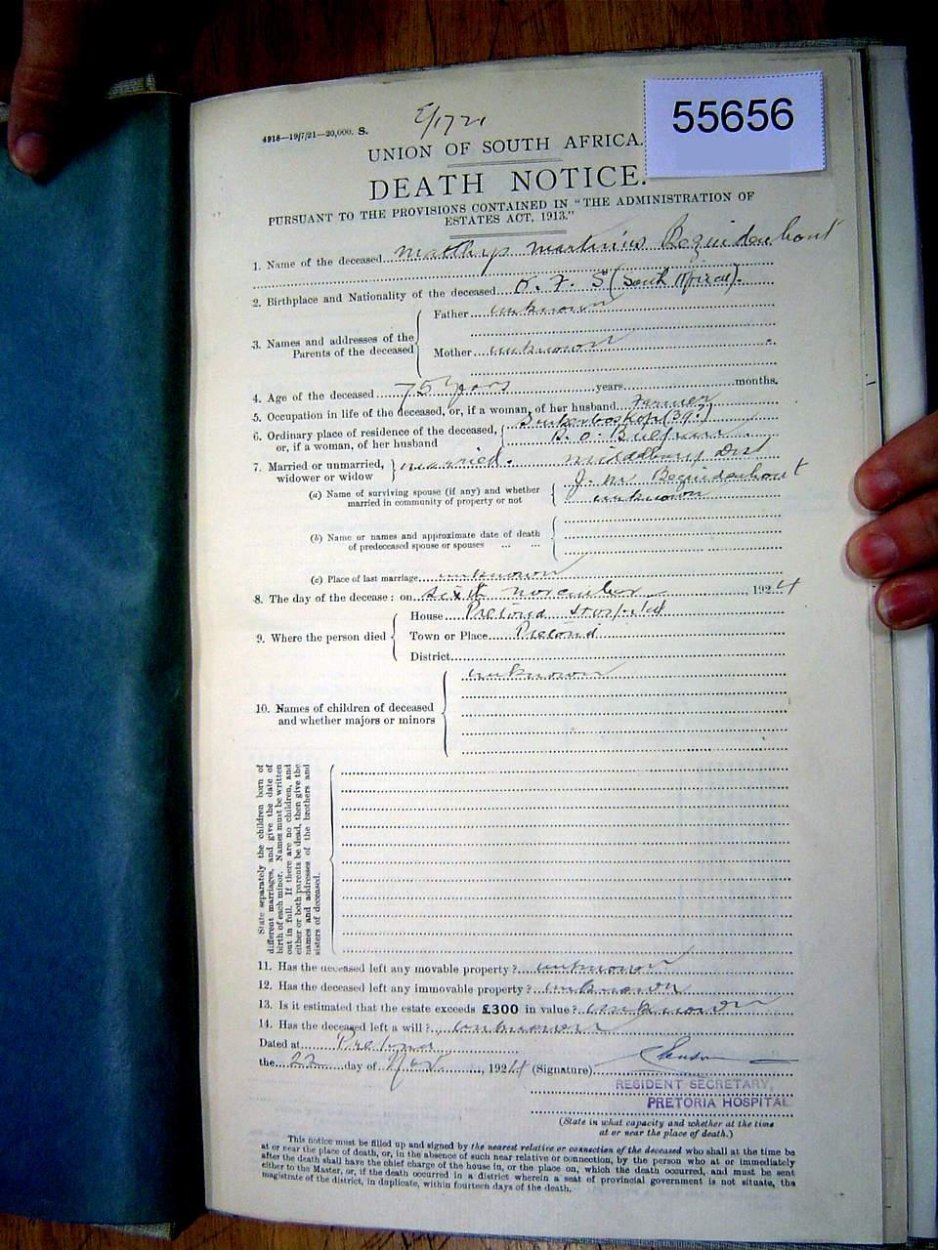 55656
4916—19/7/21—20,000. S.
UNION OF SOUTH AFRICA.
DEATH NOTICE.
PURSUANT TO THE PROVISIONS CONTAINED IN "THE ADMINISTRATION OF
ESTATES ACT, 1913."
1. Name of the deceased Matthys Martinius Bezuidenhout
2. Birthplace and Nationality of the deceased O. F. S (South African).
3. Names and addresses of the Parents of the deceased
Father unknown
Mother unknown
4. Age of the deceased 75 years years months.
5. Occupation in life of the deceased, or, if a woman, of her husband Farmer
6. Ordinary place of residence of the deceased, or, if a woman, of her husband
(39?)
P. O.
Dist
7. Married or unmarried, widower or widow married.
(a) Name of surviving spouse (if any) and whether married in community of property or not
J. Bezuidenhout
unknown
(b) Name or names and approximate date of death of predeceased spouse or spouses ... ...
(c) Place of last marriage unknown
8. The day of the decease: on sixth november 1924
9. Where the person died
House Pretoria Hospital
Town or Place Pretoria
District
10. Names of children of deceased and whether majors or minors
unknown
State separately the children born of
different marriages, and give the date of
birth of each minor. Names must be written
out in full. If there are no children, and
either or both parents be dead, then give the
names and addresses of the brothers and
sisters of deceased.
11. Has the deceased left any movable property? unknown
12. Has the deceased left any immovable property? unknown
13. Is it estimated that the estate exceeds £300 in value? unknown
14. Has the deceased left a will? unknown
Dated at Pretoria
the 22 day of Nov., 1924 (Signature)
RESIDENT SECRETARY,
PRETORIA HOSPITAL
(State in what capacity and whether at the time
at or near the place of death.)
This notice must be filled up and signed by the nearest relative or connection of the deceased who shall at the time be
at or near the place of death, or, in the absence of such near relative or connection, by the person who at or immediately
after the death shall have the chief charge of the house in, or the place on, which the death occurred, and must be sent
either to the Master, or, if the death occurred in a district wherein a seat of provincial government is not situate, the
magistrate of the district, in duplicate, within fourteen days of the death.